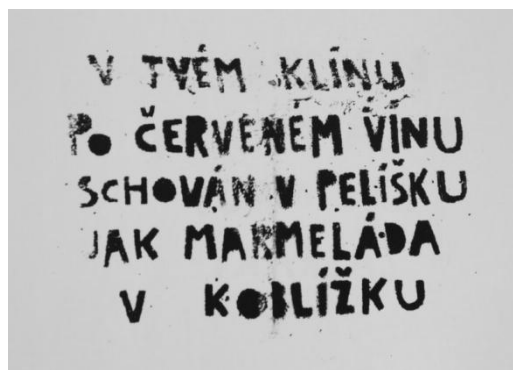 V TVÉM KLÍNU
PO ČERVENÉM VÍNU
SCHOVÁN V PELÍŠKU
JAK MARMELÁDA
V KOBLÍŽKU